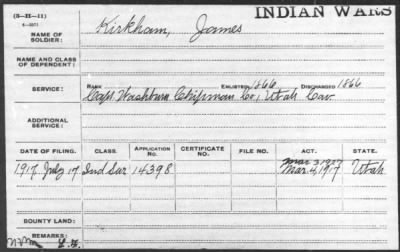 (3-EE-11)
INDIAN WARS
NAME OF SOLDIER: Kirkham, James
NAME AND CLASS OF DEPENDENT:
SERVICE: RANK ENLISTED 1866 DISCHARGED 1866
Capt Washburn Chipman Co, Utah Cav.
ADDITIONAL SERVICE:
DATE OF FILING. CLASS. APPLICATION No. CERTIFICATE No. FILE NO. ACT. STATE.
Mar 3 1927
1917 July 17 Ind Sur 14398 Mar 4, 1917 Utah
BOUNTY LAND:
REMARKS: